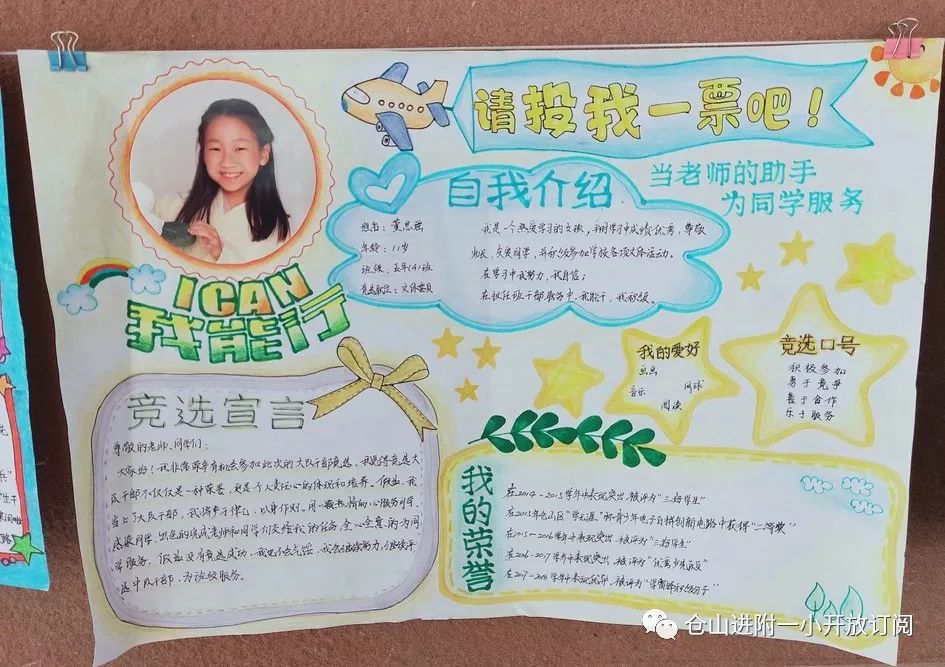 请投我一票吧！
当老师的助手
为同学服务
I CAN
我能行
自我介绍
姓名：黄思涵
年龄：11岁
班级：五年(4)班
竞选职位：文体委员
我是一个热爱学习的女孩，在学习中成绩优秀，尊敬
师长，友爱同学，并积极参加学校各项文体活动。
在学习中我努力，我自信；
在担任班干部职务中，我能干，我积极。
我的爱好
画画
音乐
网球
阅读
竞选口号
积极参加
勇于竞争
善于合作
乐于服务
竞选宣言
尊敬的老师、同学们：
大家好！我非常荣幸有机会参加此次的大队干部竞选，我觉得竞选大
队干部不仅仅是一种荣誉，更是个人责任心的体现和培养。假如，我
当上了大队干部，我将严于律己，以身作则，用一颗热情的心服务同学、
感染同学，出色的完成老师和同学们交给我的任务，全心全意的为同
学服务。假如没有竞选成功，我也不会气馁，我会继续努力，继续评
选中队干部，为班级服务。
我的荣誉
在2014-2015学年中表现突出，被评为“三好学生”
在2015年仓山区“学无涯”杯青少年电子百拼创新电路中获得“二等奖”
在2015-2016学年中表现突出，被评为“三好学生”
在2016-2017学年中表现突出，被评为“优秀少先队员”
在2017-2018学年中表现优异，被评为“学雷锋积极分子”
仓山进附一小开放订阅